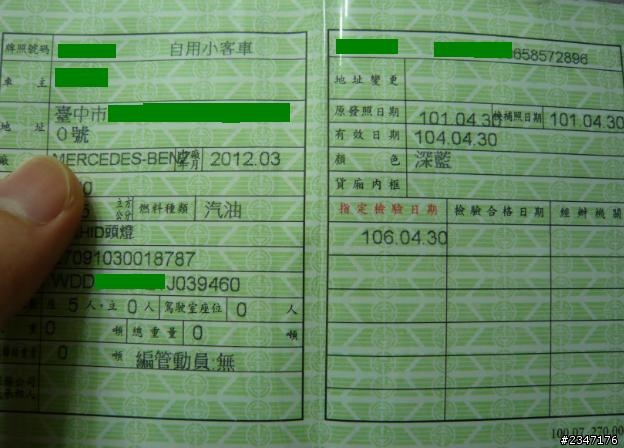 牌照號碼 自用小客車
車 主
地 址 臺中市
0號
廠 MERCEDES-BENZ 出廠年月 2012.03
0
立方公分 燃料種類 汽油
HID頭燈
7091030018787
WDD J039460
座 5 人,立 0 人 駕駛室座位 0 人
重 0 噸 總重量 0 噸
0 噸 編管動員:無
658572896
地址變更
原發照日期 101.04.30 換補照日期 101.04.30
有效日期 104.04.30
顏 色 深藍
貨廂內框
指定檢驗日期 檢驗合格日期 經辦機關
106.04.30
100.07. 270.00
#2347176